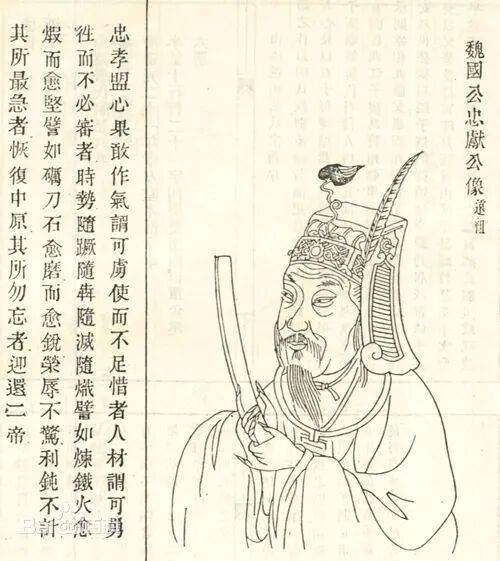 魏國公忠獻公像 遠祖
忠孝盟心果敢作氣謂可虜使而不足惜者人材謂可勇
徃而不必審者時勢隨蹶隨犇隨減隨熾譬如煉鐵火愈
煆而愈堅譬如礪刀石愈磨而愈銳榮辱不驚利鈍不計
其所最急者恢復中原其所勿忘者迎還二帝
Bai 百科